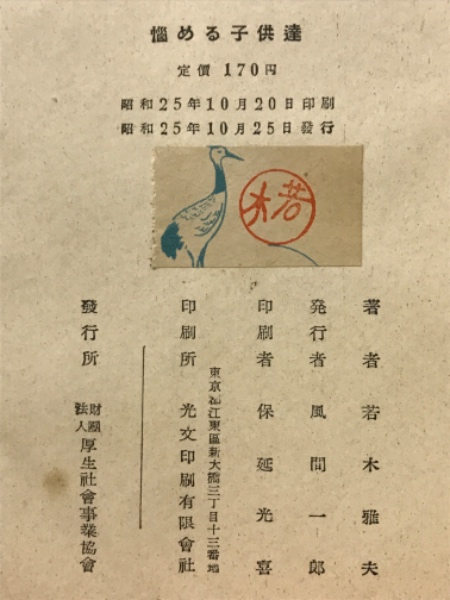 悩める子供達
定價 170円
昭和25年10月20日印刷
昭和25年10月25日發行
若木
著者 若木雅夫
発行者 風間一郎
印刷者 保延光喜
東京都江東區新大橋三丁目十三番地
印刷所 光文印刷有限會社
發行所 財團法人 厚生社會事業協會